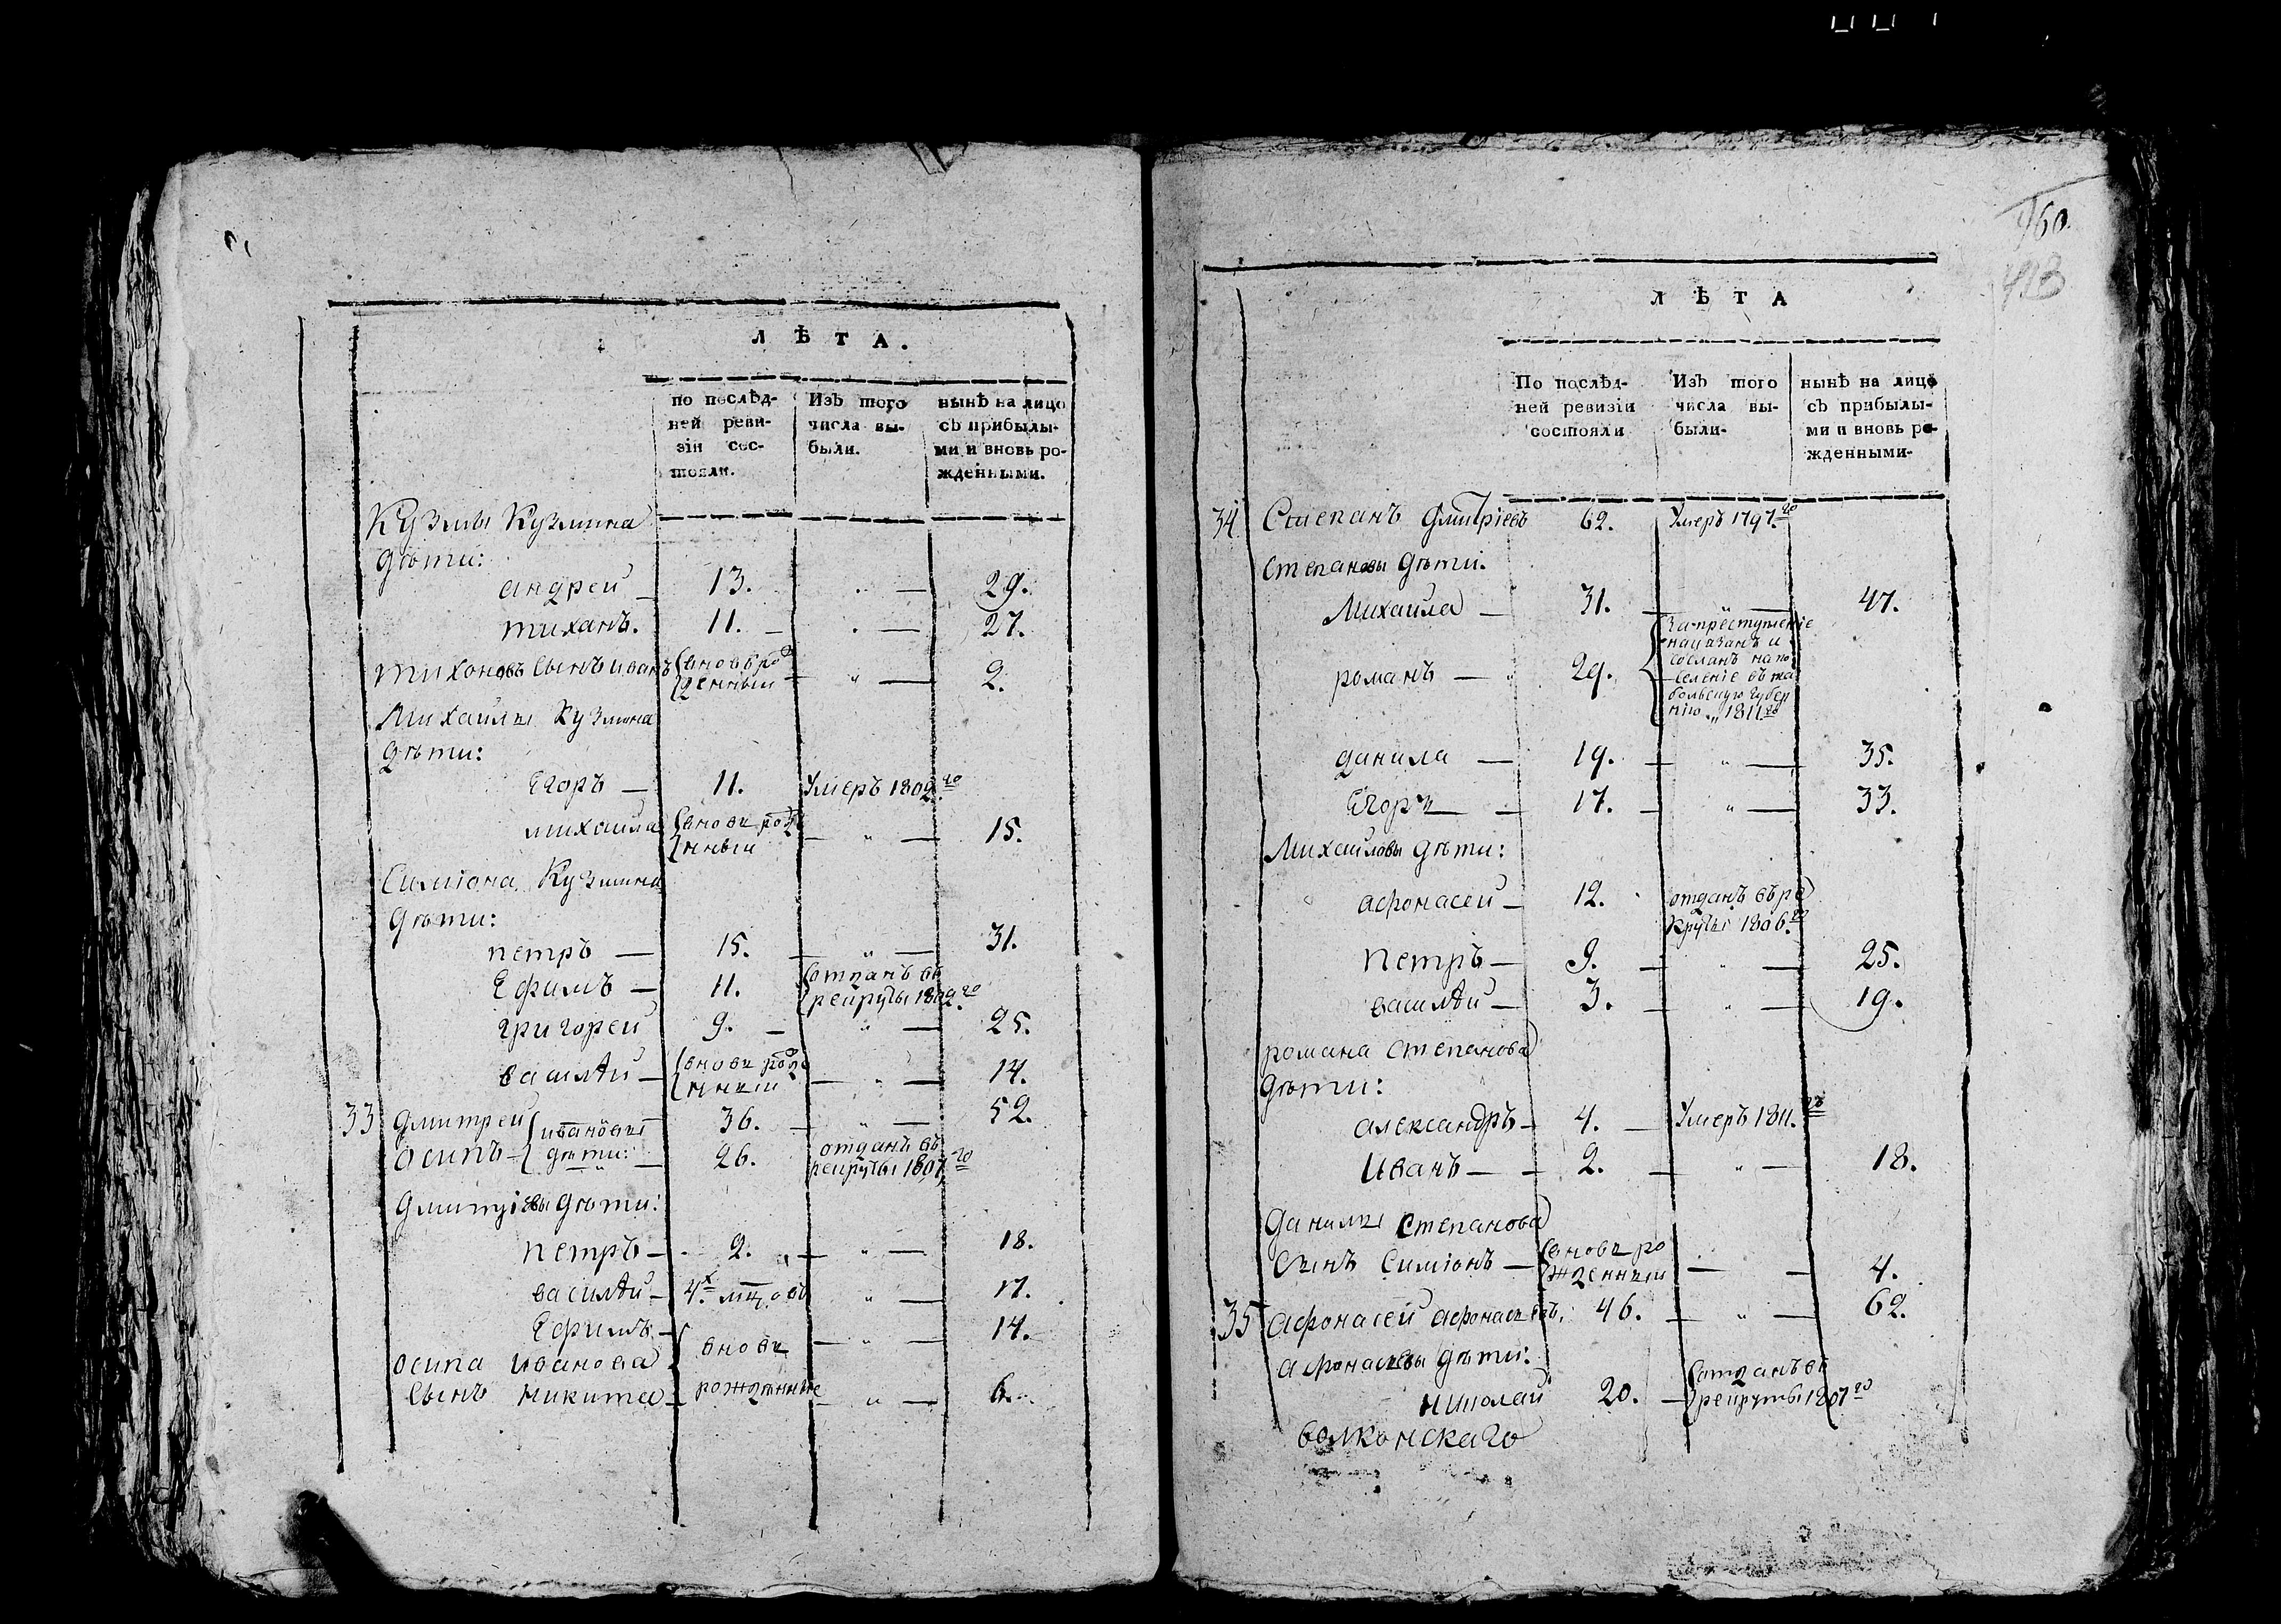 Л Ѣ Т А .
по послѣд-
ней реви-
зіи сос-
тояли.
Изъ того
числа вы-
были.
нынѣ на лицо
съ прибылы-
ми и вновь ро-
жденными.
Кузмы Кузмина
дѣти:
андреи 13. „ — 29.
тиханъ. 11. — „ — 27.
тихоновъ сынъ иванъ вновь рож „ — 2.
денныи
Михаилы Кузмина
дѣти:
Егоръ — 11. Умеръ 1802го
михаила вновь рожде — „ — 15.
нныи
Симіона Кузмина
дѣти:
петръ — 15. — „ — 31.
Ефимъ — 11. отданъ въ
рекруты 1802го
григореи 9. — „ — 25.
василѣи — вновь рожде — „ — 14.
нныи
33 дмитреи ивановы 36. — „ — 52.
осипъ — дѣти: — 26. отданъ въ
рекруты 1807го
дмитріевы дѣти:
петръ — 2. — „ — 18.
василѣи — 4х мцовъ „ — 17.
Ефимъ — вновь — „ — 14.
осипа иванова
сынъ никита — рожденные — „ — 6.
160.
418
Л Ѣ Т А
По послѣд-
ней ревизіи
состояли
Изъ того
числа вы-
были-
нынѣ на лицо
съ прибылы-
ми и вновь ро-
жденными-
34 Степанъ дмитріевъ 62. Умеръ 1797го
степановы дѣти.
Михаила — 31. — „ — 47.
романъ — 29. За преступленіе
наказанъ и
сосланъ на по
селеніе въ та
больскую губер
нію „ 1811го
данила — 19. — „ — 35.
Егоръ — 17. — „ — 33.
Михаиловы дѣти:
афонасеи — 12. отданъ въ ре
круты 1806го
Петръ — 9. — „ — 25.
василѣи — 3. — „ — 19.
романа степанова
дѣти:
александръ — 4. — Умеръ 1811.го
Иванъ — 2. — „ — 18.
данилы степанова
сынъ симіонъ — вновь ро — „ — 4.
жденныи
35 афонасеи афонасьевъ. 46. — „ — 62.
афонасьевы дѣти:
николаи 20. — отданъ въ
рекруты 1807го
волконскаго